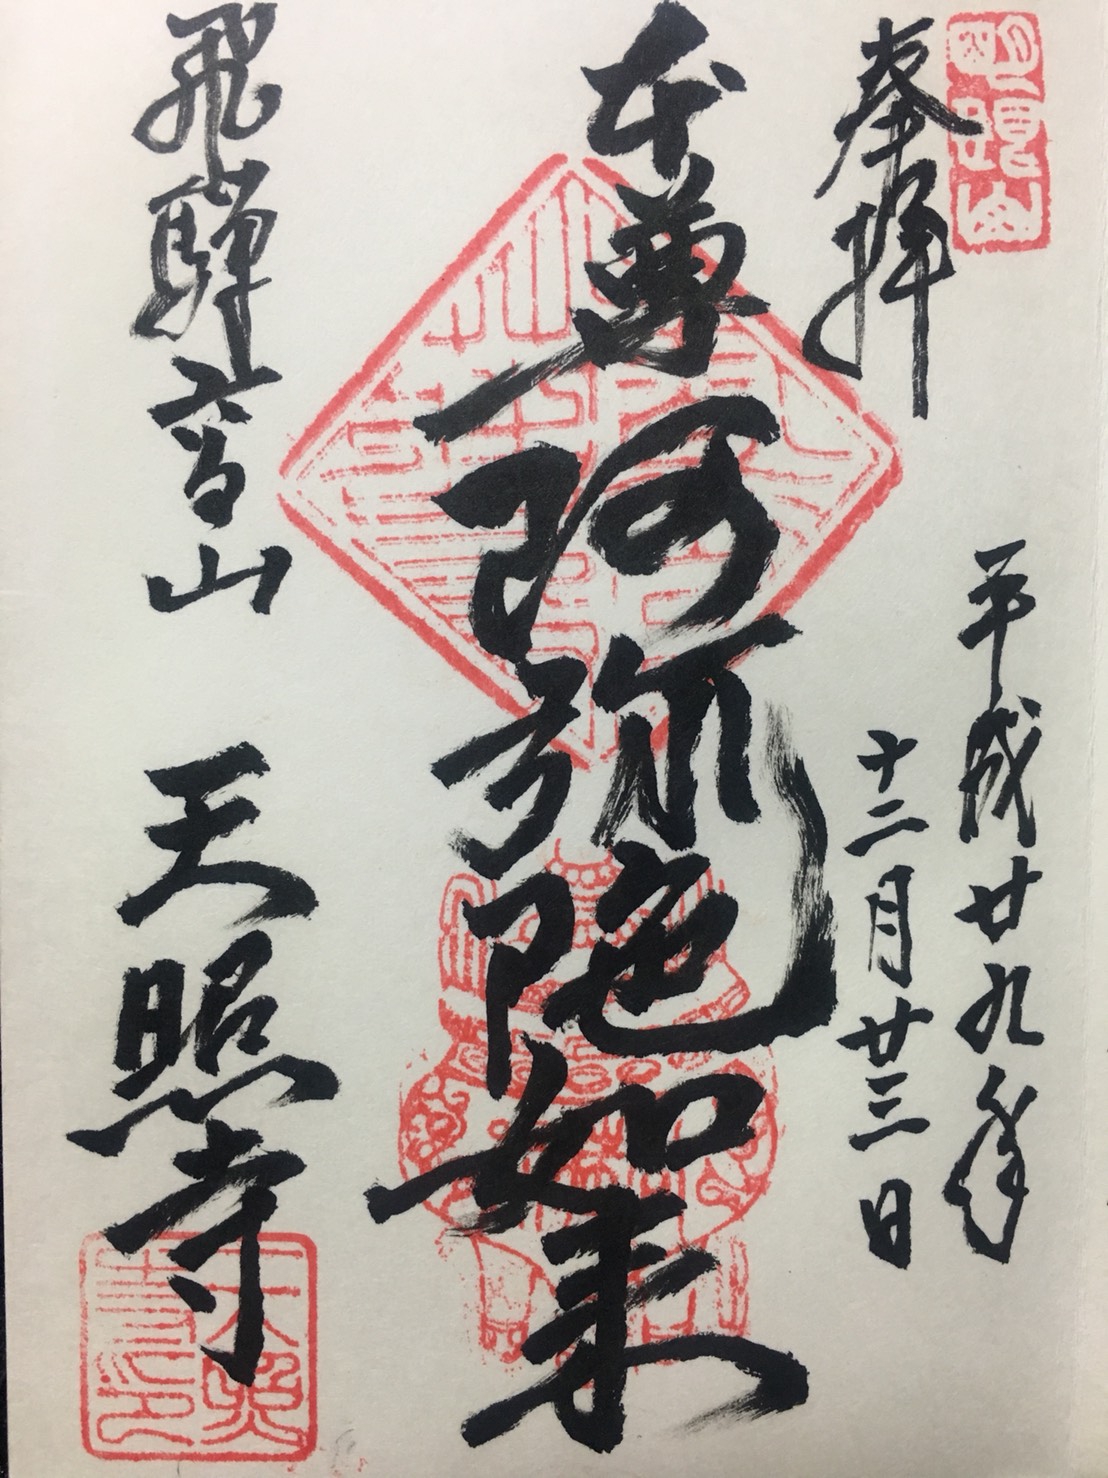 奉拝
平成廿九年
十二月廿三日
本尊阿弥陀如来
飛騨高山 天照寺